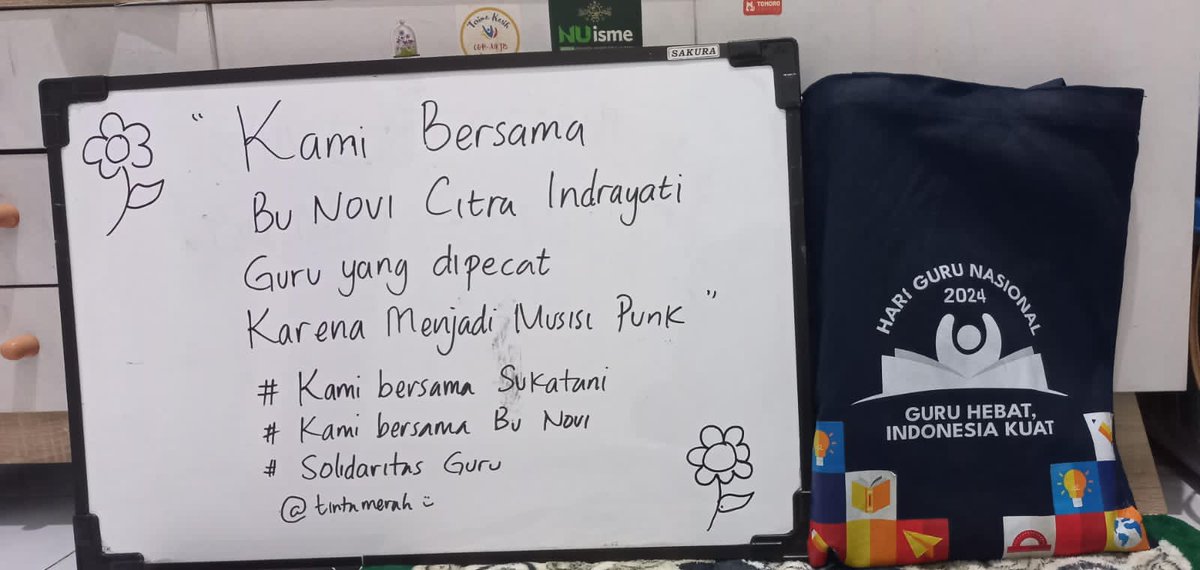 Terima Kasih
NUisme
TOMORO
SAKURA
" Kami Bersama
Bu NOVI Citra Indrayati
Guru yang dipecat
Karena Menjadi Musisi Punk "
# Kami bersama Sukatani
# Kami bersama Bu Novi
# Solidaritas Guru
@tintamerah
HARI GURU NASIONAL
2024
GURU HEBAT,
INDONESIA KUAT